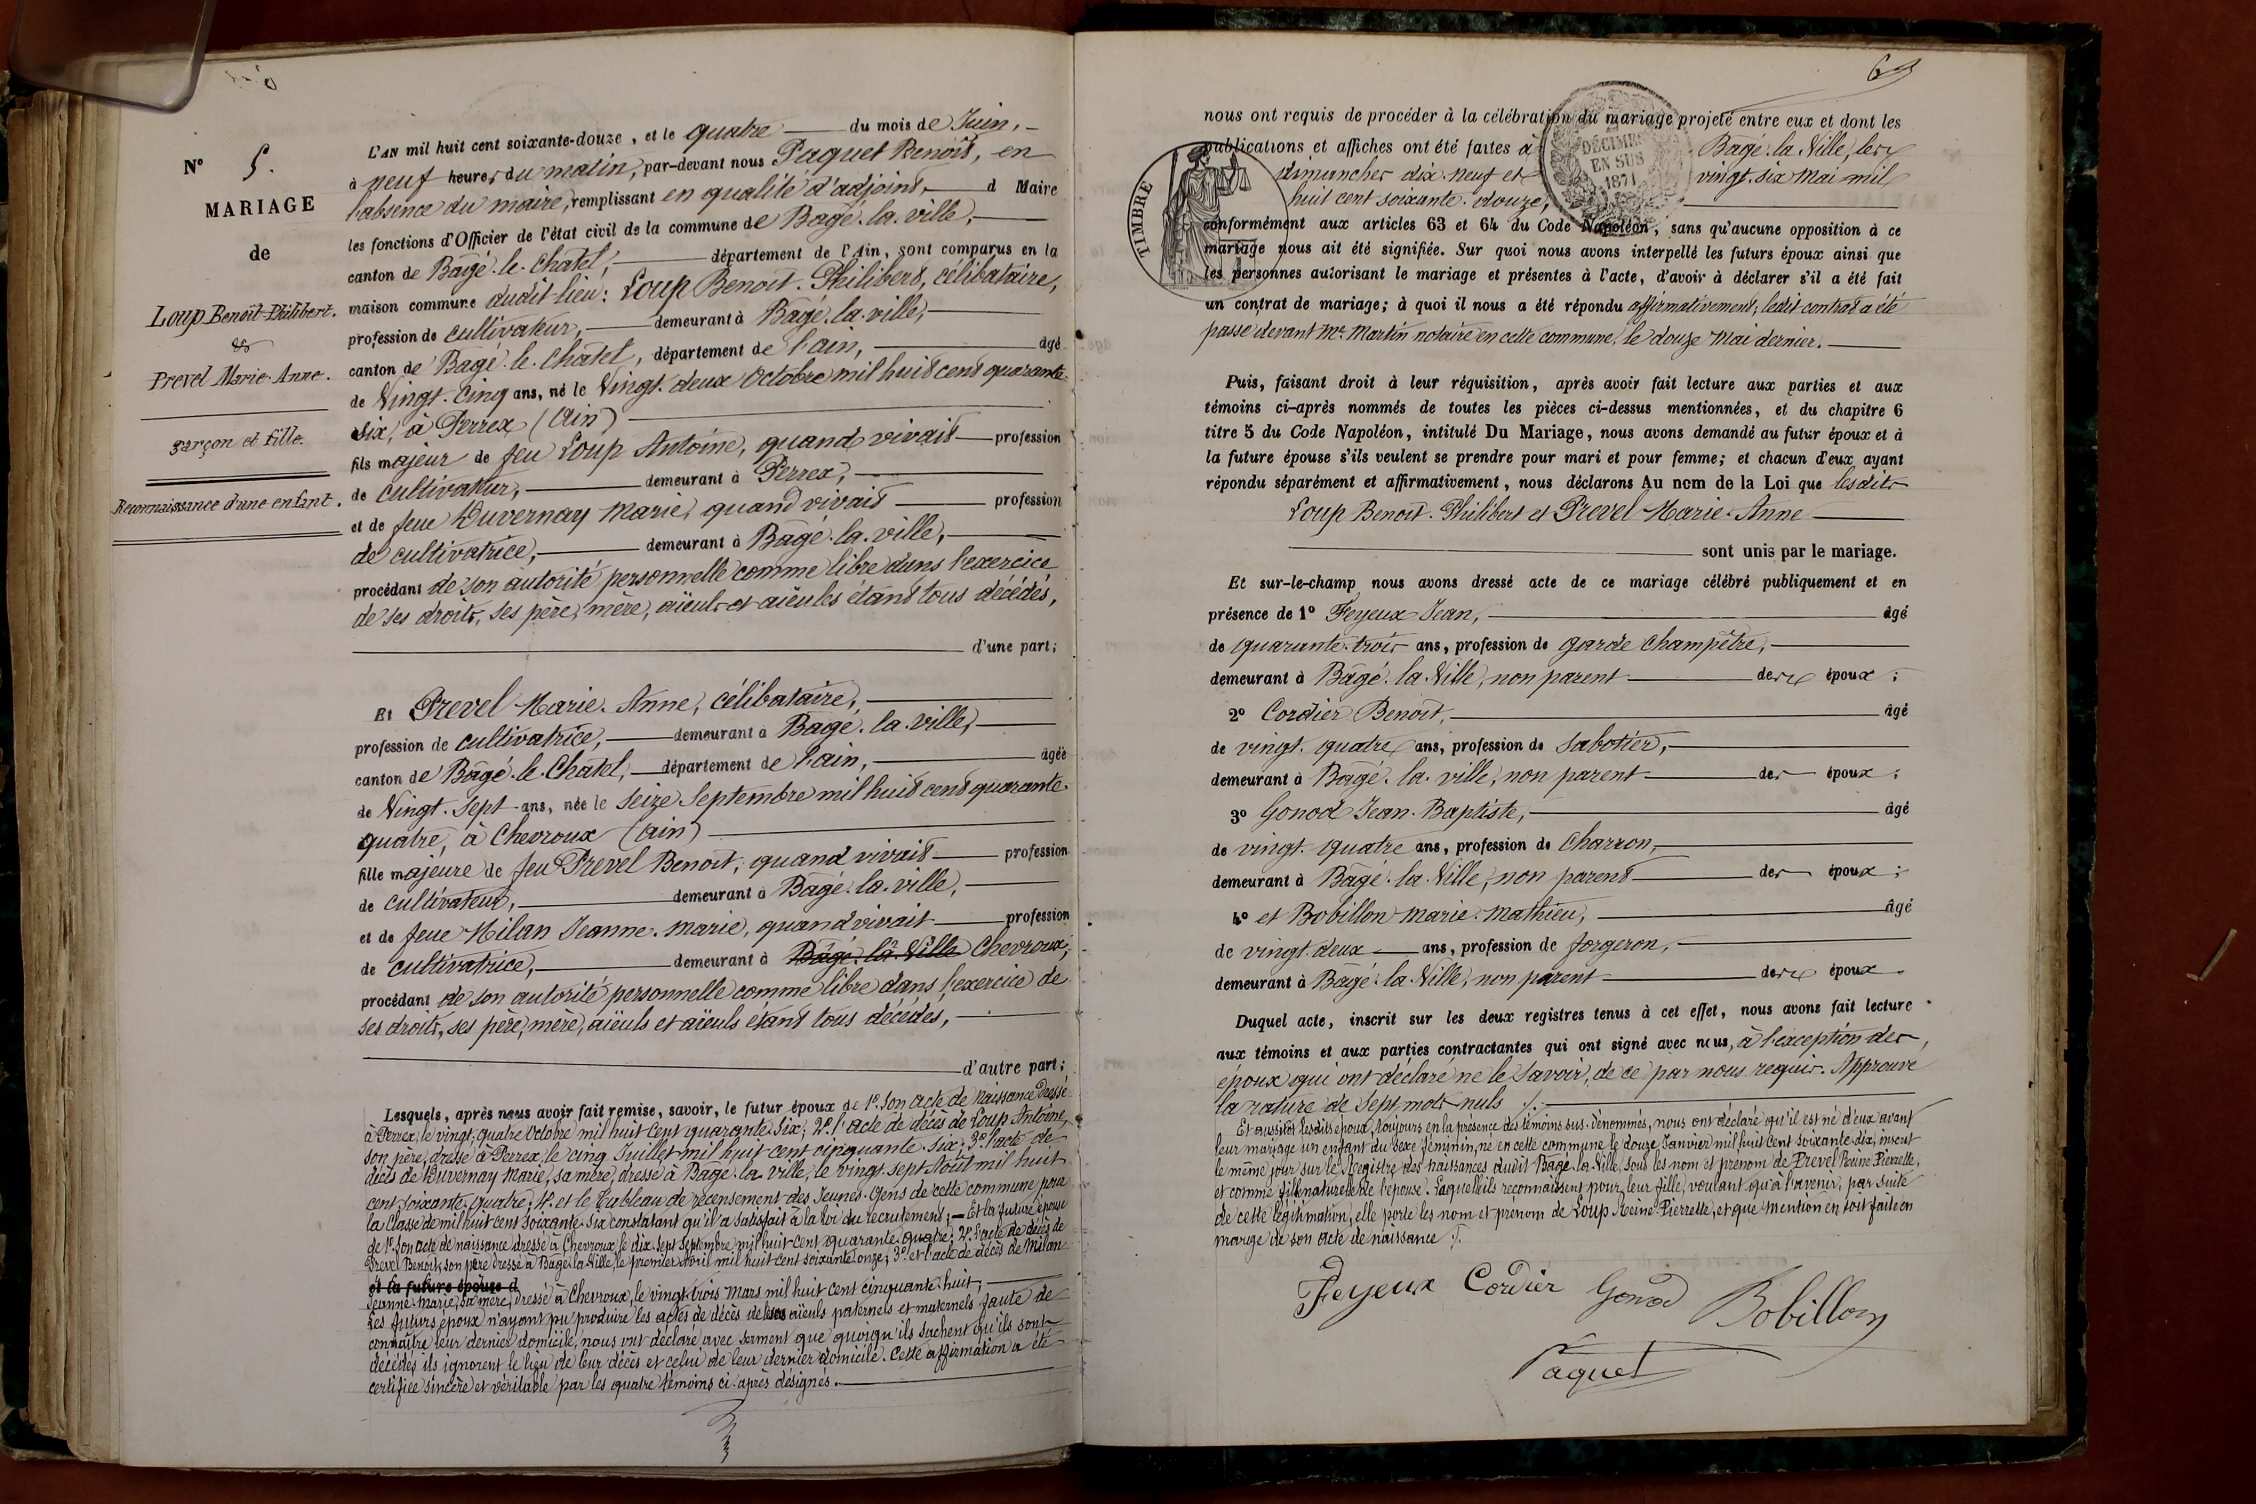 N° 5.
MARIAGE
de
Loup Benoît Philibert.
&
Prevel Marie-Anne.
garçon et fille.
Reconnaissance d'une enfant.
L'AN mil huit cent soixante-douze, et le quatre du mois de Juin,
à neuf heures du matin, par-devant nous Paquet Benoît, en
l'absence du maire, remplissant en qualité d'adjoint, d Maire
les fonctions d'Officier de l'état civil de la commune de Bâgé-la-ville,
canton de Bâgé-le-Chatel, département de l'Ain, sont comparus en la
maison commune dudit lieu: Loup Benoît-Philibert, célibataire,
profession de cultivateur, demeurant à Bâgé-la-ville,
canton de Bâgé-le-Chatel, département de l'ain, âgé
de Vingt-Cinq ans, né le Vingt-deux Octobre mil huit cent quarante-
six, à Perrex (Ain)
fils majeur de feu Loup Antoine, quand vivait profession
de cultivateur, demeurant à Perrex,
et de feue Duvernay Marie, quand vivait profession
de cultivatrice, demeurant à Bâgé-la-ville,
procédant de son autorité personnelle comme libre dans l'exercice
de ses droits, ses père, mère, aïeuls et aïeules étant tous décédés,
d'une part;
Et Prevel Marie-Anne, célibataire,
profession de cultivatrice, demeurant à Bâgé-la-ville,
canton de Bâgé-le-Chatel, département de l'ain, âgée
de Vingt-Sept ans, née le seize Septembre mil huit cent quarante-
quatre, à Chevroux (ain)
fille majeure de feu Prevel Benoît, quand vivait profession
de cultivateur, demeurant à Bâgé-la-ville,
et de feue Milan Jeanne-marie, quand vivait profession
de cultivatrice, demeurant à Bâgé-la-Ville Chevroux,
procédant de son autorité personnelle comme libre dans l'exercice de
ses droits, ses père, mère, aïeuls et aïeuls étant tous décédés,
d'autre part;
Lesquels, après nous avoir fait remise, savoir, le futur époux de 1°. Son acte de naissance dressé
à Perrex, le vingt-quatre Octobre mil huit cent quarante-six; 2°. l'acte de décès de Loup Antoine,
son père, dressé à Perrex, le cinq Juillet mil huit cent cinquante-six; 3°. l'acte de
décès de Duvernay Marie, sa mère, dressé à Bâgé-la-ville, le vingt-sept Août mil huit
cent soixante-quatre; 4°. et le Tableau de recensement des Jeunes-Gens de cette commune pour
la Classe de mil huit cent soixante-six constatant qu'il a satisfait à la loi du recrutement; — Et la future épouse
de 1°. Son acte de naissance dressé à Chevroux, le dix-sept Septembre mil huit cent quarante-quatre; 2°. l'acte de décès de
Prevel Benoît, son père dressé à Bâgé-la-Ville, le premier Avril mil huit cent soixante-onze; 3°. et l'acte de décès de Milan
et la future épouse d
Jeanne-Marie, sa mère, dressé à Chevroux, le vingt-trois Mars mil huit cent cinquante-huit;
Les futurs époux n'ayant pu produire les actes de décès de leurs aïeuls paternels et maternels faute de
connaître leur dernier domicile, nous ont déclaré avec serment que quoiqu'ils sachent qu'ils sont
décédés ils ignorent le lieu de leur décès et celui de leur dernier domicile. Cette affirmation a été
certifiée sincère et véritable par les quatre témoins ci-après désignés.
69
nous ont requis de procéder à la célébration du mariage projeté entre eux et dont les
publications et affiches ont été faites à Bâgé-la-Ville, les
dimanches dix-neuf et vingt-six Mai mil
huit cent soixante-douze,
TIMBRE
2 DÉCIMES EN SUS 1871
conformément aux articles 63 et 64 du Code Napoléon, sans qu'aucune opposition à ce
mariage nous ait été signifiée. Sur quoi nous avons interpellé les futurs époux ainsi que
les personnes autorisant le mariage et présentes à l'acte, d'avoir à déclarer s'il a été fait
un contrat de mariage; à quoi il nous a été répondu affirmativement, ledit contrat a été
passé devant Me. Martin notaire en cette commune, le douze Mai dernier.
Puis, faisant droit à leur réquisition, après avoir fait lecture aux parties et aux
témoins ci-après nommés de toutes les pièces ci-dessus mentionnées, et du chapitre 6
titre 5 du Code Napoléon, intitulé Du Mariage, nous avons demandé au futur époux et à
la future épouse s'ils veulent se prendre pour mari et pour femme; et chacun d'eux ayant
répondu séparément et affirmativement, nous déclarons Au nom de la Loi que lesdits
Loup Benoît-Philibert et Prevel Marie-Anne
sont unis par le mariage.
Et sur-le-champ nous avons dressé acte de ce mariage célébré publiquement et en
présence de 1° Feyeux Jean, âgé
de quarante-trois ans, profession de garde champêtre,
demeurant à Bâgé-la-Ville, non parent des époux;
2° Cordier Benoît, âgé
de vingt-quatre ans, profession de sabotier,
demeurant à Bâgé-la-ville, non parent des époux;
3° Gonod Jean-Baptiste, âgé
de vingt-quatre ans, profession de Charron,
demeurant à Bâgé-la-Ville, non parent des époux;
4° et Bobillon marie-mathieu, âgé
de vingt-deux ans, profession de forgeron,
demeurant à Bâgé-la-Ville, non parent des époux.
Duquel acte, inscrit sur les deux registres tenus à cet effet, nous avons fait lecture
aux témoins et aux parties contractantes qui ont signé avec nous, à l'exception des
époux qui ont déclaré ne le savoir, de ce par nous requis. Approuvé
la rature de sept mots nuls ./.
Et aussitôt lesdits époux, toujours en la présence des témoins sus-dénommés, nous ont déclaré qu'il est né d'eux avant
leur mariage un enfant du sexe féminin, né en cette commune le douze Janvier mil huit cent soixante-dix, inscrit
le même jour sur le Registre des naissances dudit Bâgé-la-Ville, sous les nom et prénom de Prevel Reine Pierrette,
et comme fille naturelle de l'épouse. Laquelle ils reconnaissent pour leur fille, voulant qu'à l'avenir, par suite
de cette légitimation, elle porte les nom et prénom de Loup Reine Pierrette, et que mention en soit faite en
marge de son acte de naissance ./.
Feyeux Cordier Gonod Bobillon
Paquet